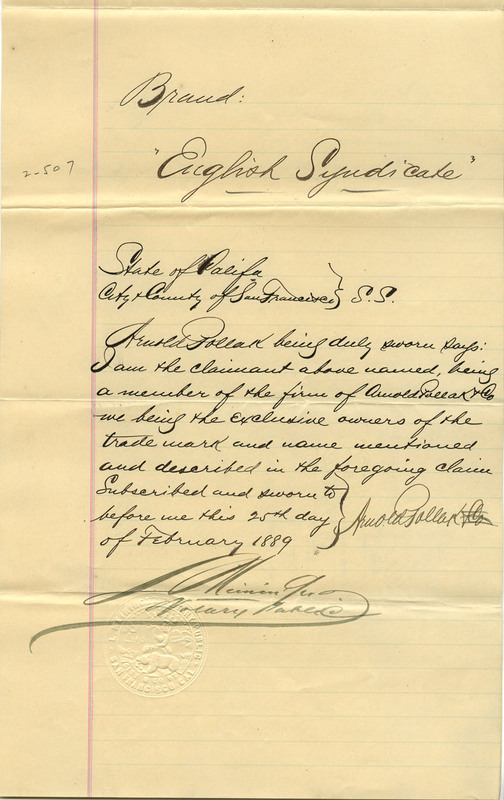 Brand:
2-507
"English Syndicate"
State of Califa
City & County of San Francisco } S.S.
Arnold Pollak being duly sworn says:
I am the claimant above named, being
a member of the firm of Arnold Pollak & Co
we being the exclusive owners of the
trade mark and name mentioned
and described in the foregoing claim
Subscribed and sworn to
before me this 25th day } Arnold Pollak & Co
of February 1889
Notary Public